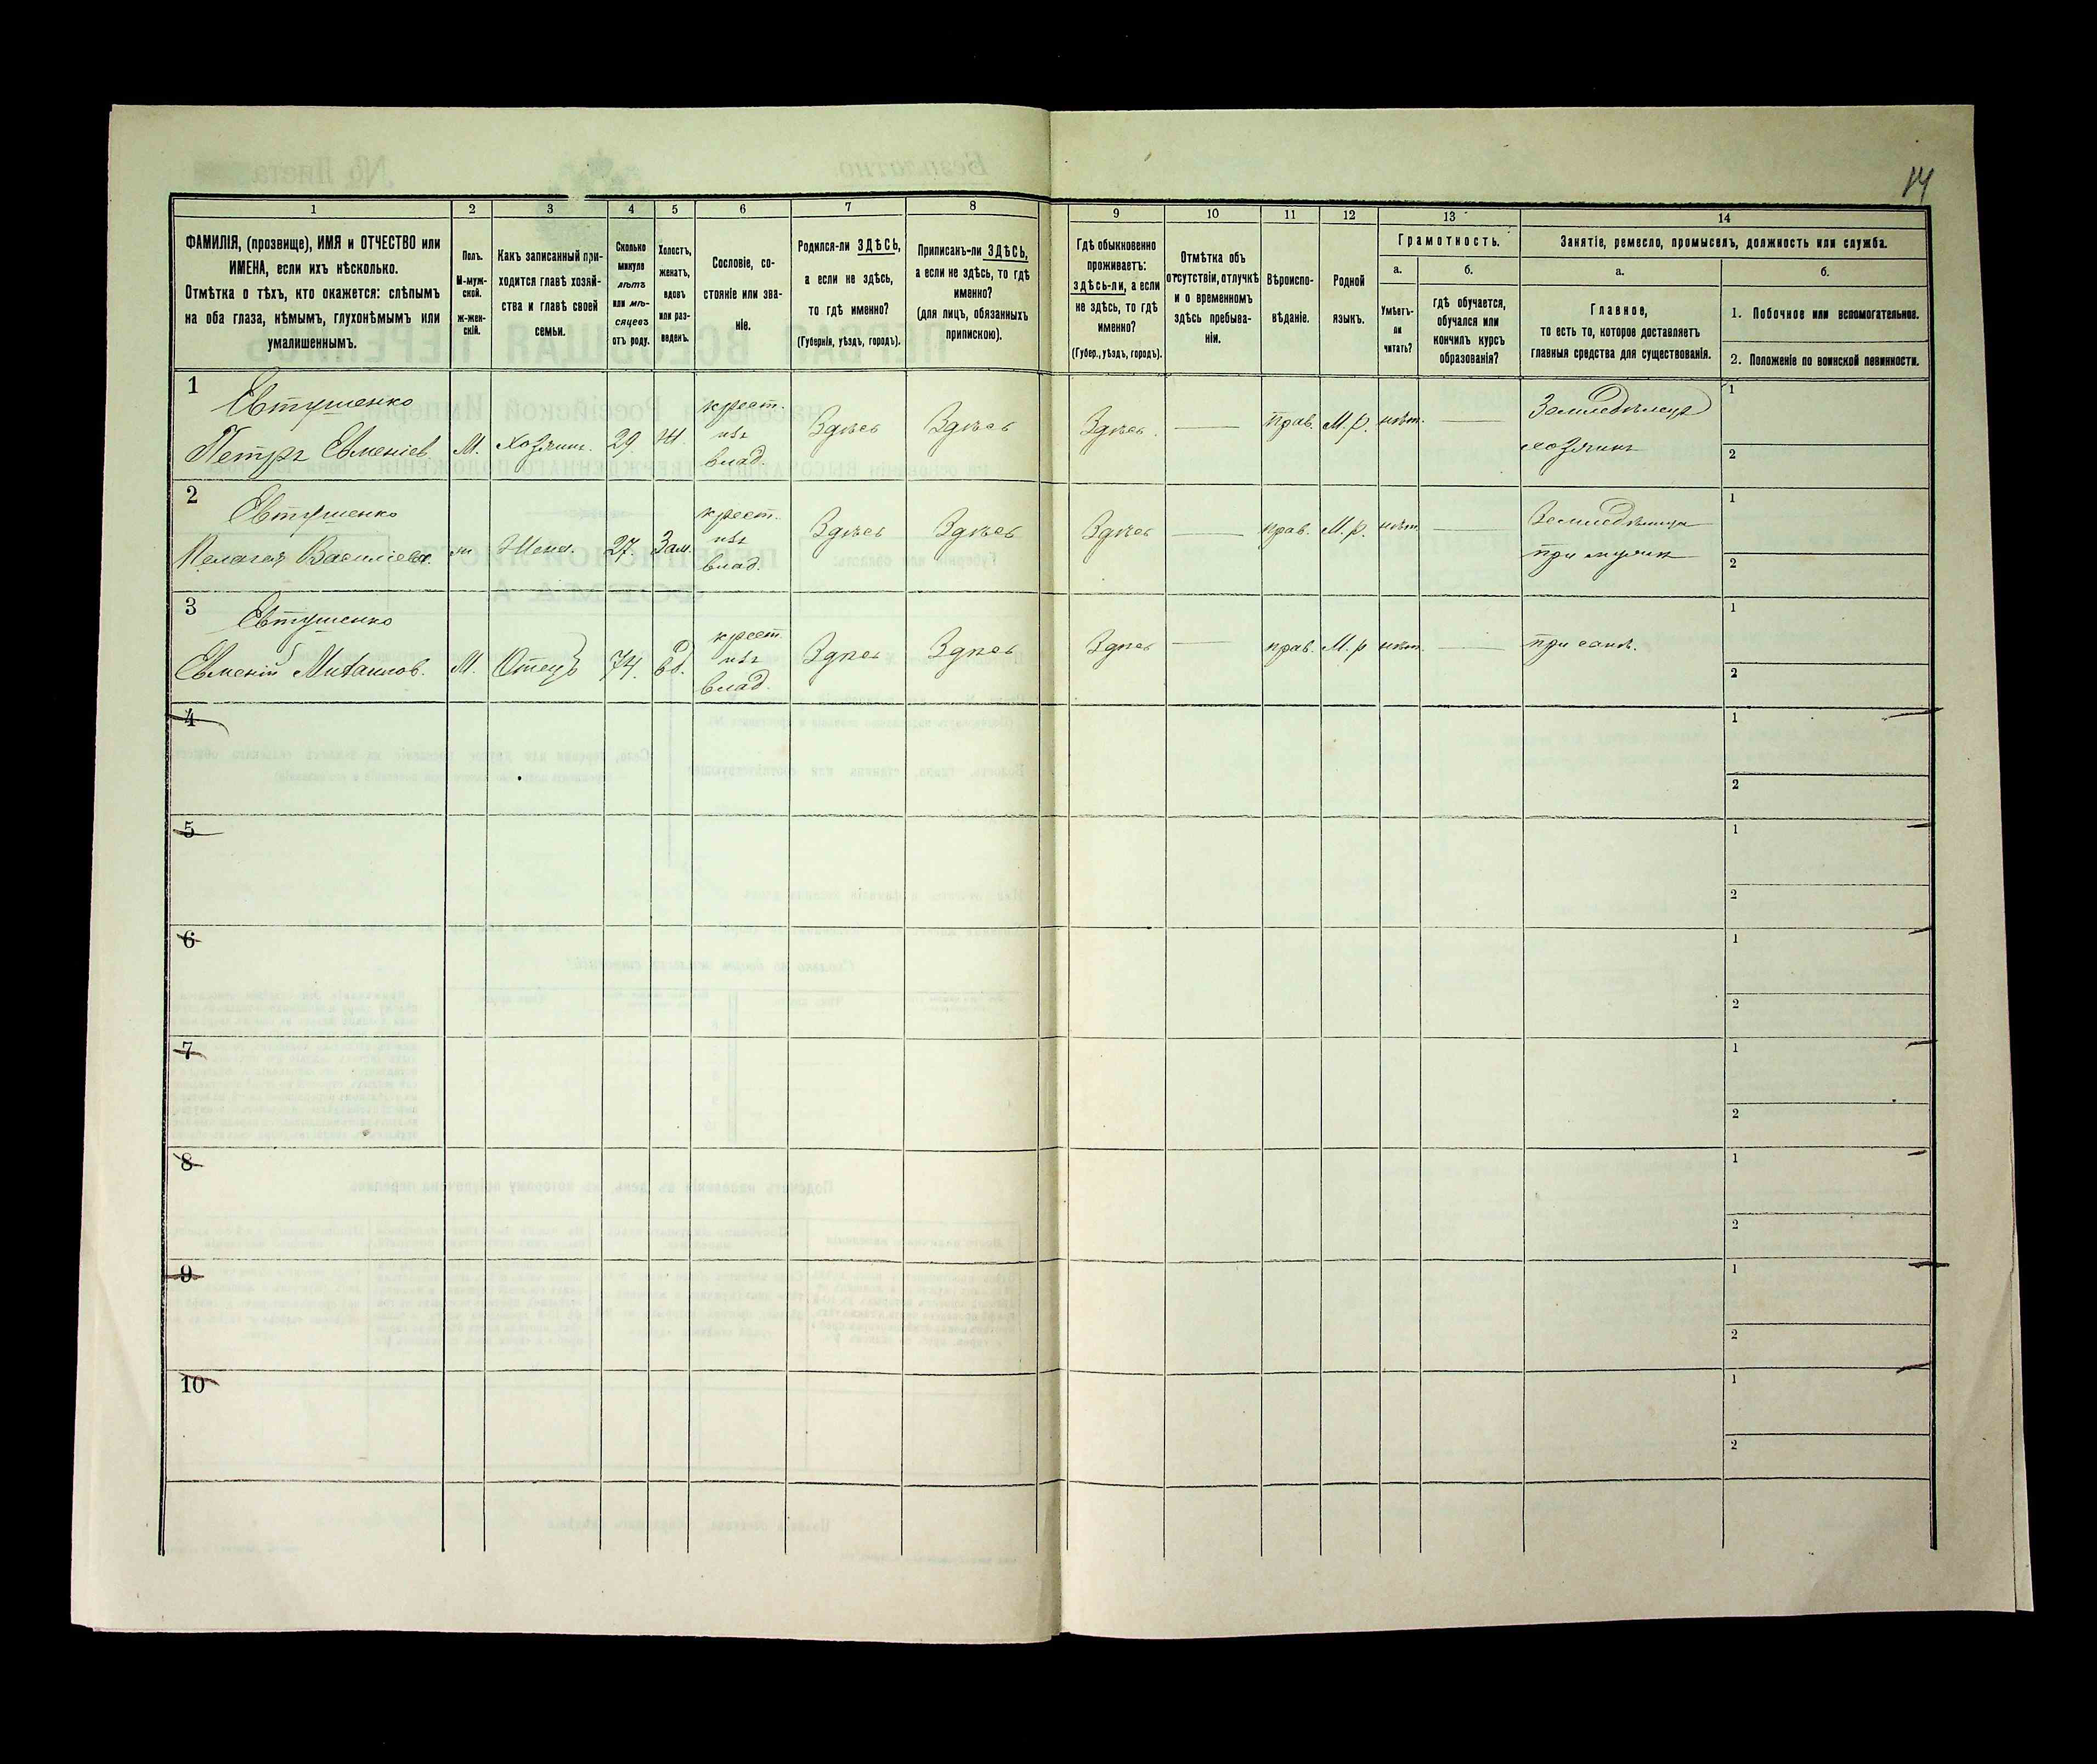 14
1 2 3 4 5 6 7 8 9 10 11 12 13 14
ФАМИЛІЯ, (прозвище), ИМЯ и ОТЧЕСТВО или
ИМЕНА, если ихъ нѣсколько.
Отмѣтка о тѣхъ, кто окажется: слѣпымъ
на оба глаза, нѣмымъ, глухонѣмымъ или
умалишеннымъ.
Полъ.
М-муж-
ской.
ж-жен-
скій.
Какъ записанный при-
ходится главѣ хозяй-
ства и главѣ своей
семьи.
Сколько
минуло
лѣтъ
или мѣ-
сяцевъ
отъ роду.
Холостъ,
женатъ,
вдовъ
или раз-
веденъ.
Сословіе, со-
стояніе или зва-
ніе.
Родился-ли ЗДѢСЬ,
а если не здѣсь,
то гдѣ именно?
(Губернія, уѣздъ, городъ).
Приписанъ-ли ЗДѢСЬ,
а если не здѣсь, то гдѣ
именно?
(для лицъ, обязанныхъ
припискою).
Гдѣ обыкновенно
проживаетъ:
здѣсь-ли, а если
не здѣсь, то гдѣ
именно?
(Губер., уѣздъ, городъ).
Отмѣтка объ
отсутствіи, отлучкѣ
и о временномъ
здѣсь пребыва-
ніи.
Вѣроиспо-
вѣданіе.
Родной
языкъ.
Грамотность.
а.
Умѣетъ-
ли
читать?
б.
гдѣ обучается,
обучался или
кончилъ курсъ
образованія?
Занятіе, ремесло, промыселъ, должность или служба.
а.
Главное,
то есть то, которое доставляетъ
главныя средства для существованія.
б.
1. Побочное или вспомогательное.
2. Положеніе по воинской повинности.
1
Евтушенко
Петръ Евменіев.
М.
Хозяинъ.
29
Ж.
крест.
изъ
влад.
Здѣсь
Здѣсь
Здѣсь.
—
прав.
М.р.
нѣт.
—
Земледѣлецъ
хозяинъ
1
2
2
Евтушенко
Пелагея Василіева.
ж
Жена.
27.
Зам.
крест.
изъ
влад.
Здѣсь
Здѣсь
Здѣсь
—
прав.
М.р.
нѣт.
—
при мужѣ
1
2
3
Евтушенко
Евменій Михаилов.
М.
Отецъ
74.
вд.
крест.
изъ
влад.
Здѣсь
Здѣсь
Здѣсь
—
прав.
М.р
нѣт.
—
при сынѣ.
1
2
4
1
2
5
1
2
6
1
2
7
1
2
8
1
2
9
1
2
10
1
2